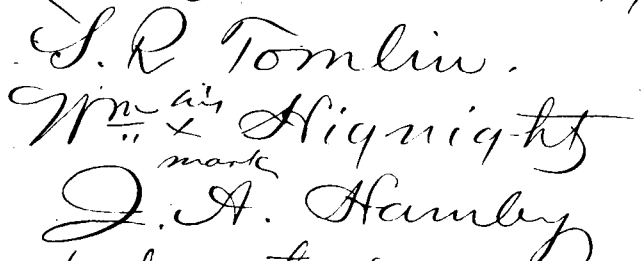 S. R Tomlin.
Wm his x mark Hignight
J. A. Hamby